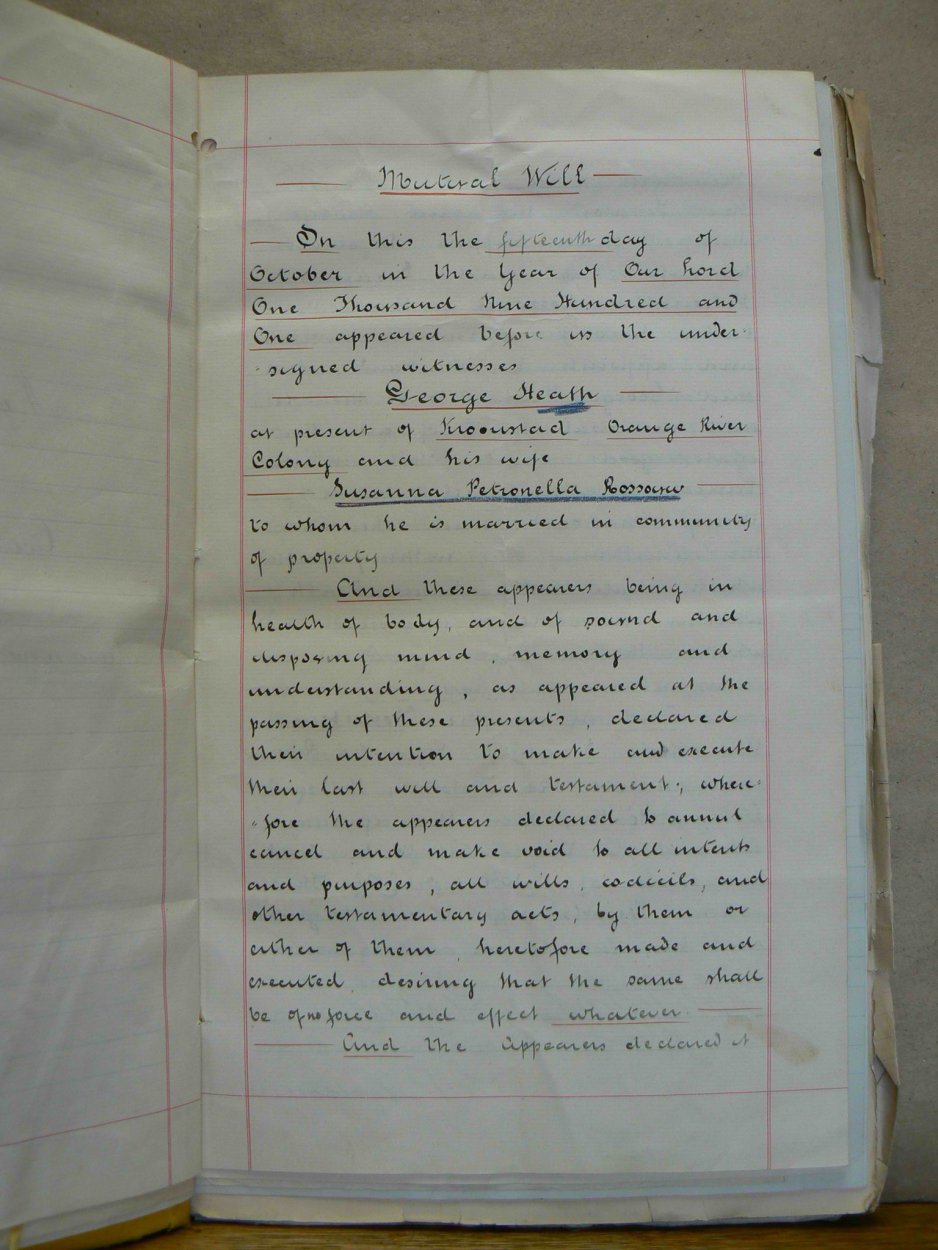 Mutual Will
On this the fifteenth day of
October in the Year of Our Lord
One Thousand Nine Hundred and
One appeared before us the under-
-signed witnesses
George Heath
at present of Kroonstad Orange River
Colony and his wife
Susanna Petronella Rossouw
to whom he is married in community
of property
And these appearers being in
health of body, and of sound and
disposing mind, memory and
understanding, as appeared at the
passing of these presents, declared
their intention to make and execute
their last will and testament; where-
-fore the appearers declared to annul
cancel and make void to all intents
and purposes, all wills, codicils, and
other testamentary acts, by them or
either of them, heretofore made and
executed, desiring that the same shall
be of no force and effect whatever
And the Appearers declared it